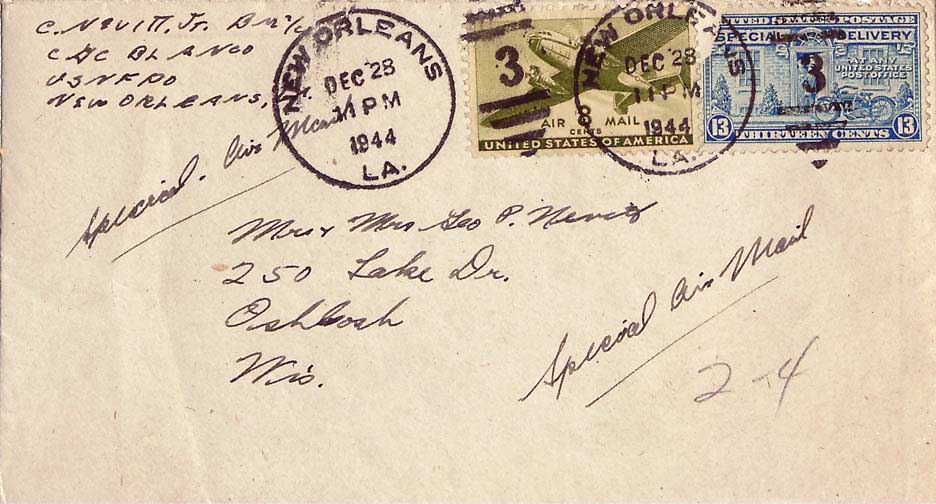 C. Nevitt, Jr.
CDC BLANCO
USNFPO
NEW ORLEANS,
Special Air Mail
NEW ORLEANS
DEC 28
11 PM
1944
LA.
3
AIR MAIL
8 CENTS
UNITED STATES OF AMERICA
NEW ORLEANS
DEC 28
11 PM
1944
LA.
UNITED STATES POSTAGE
SPECIAL DELIVERY
AT ANY
UNITED STATES
POST OFFICE
3
13 THIRTEEN CENTS 13
Mr & Mrs Geo P. Nevitt
250 Lake Dr.
Oshkosh
Wis.
Special Air Mail
2-4